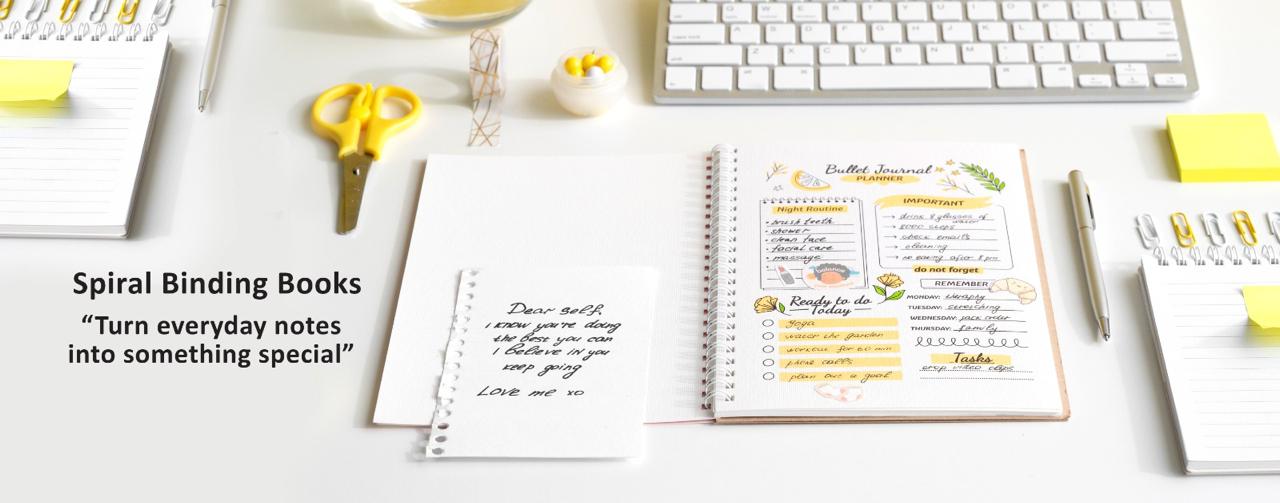 Spiral Binding Books
“Turn everyday notes
into something special”
Dear self,
i know you're doing
the best you can
i believe in you
keep going
Love me xo
Bullet Journal
PLANNER
Night Routine
• brush teeth
• shower
• clean face
• facial care
• massage
balance
IMPORTANT
→ drink 8 glasses of
water
→ 8000 steps
→ check emails
→ cleaning
→ no eating after 8 pm
do not forget
REMEMBER
MONDAY: therapy
TUESDAY: stretching
WEDNESDAY: jack order
THURSDAY: family
Ready to do
Today
yoga
water the garden
workout for 60 min
phone calls
plan out a goal
Tasks
crop video clips